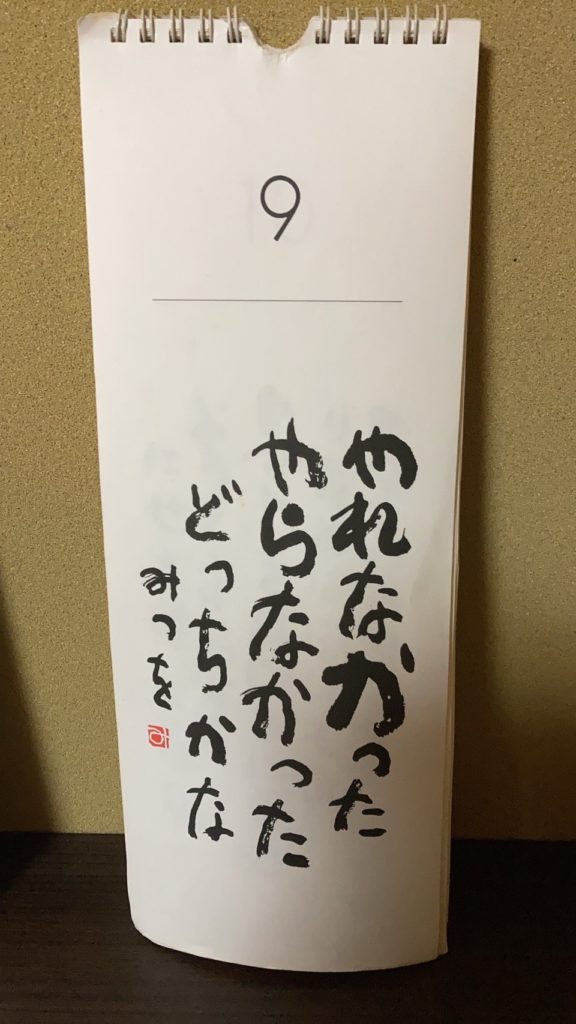 9
やれなかった
やらなかった
どっちかな
みつを